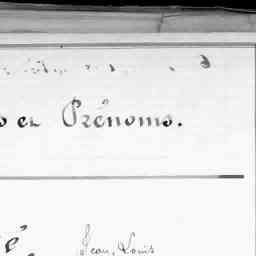 s et Prénoms.
é
Jean, Louis